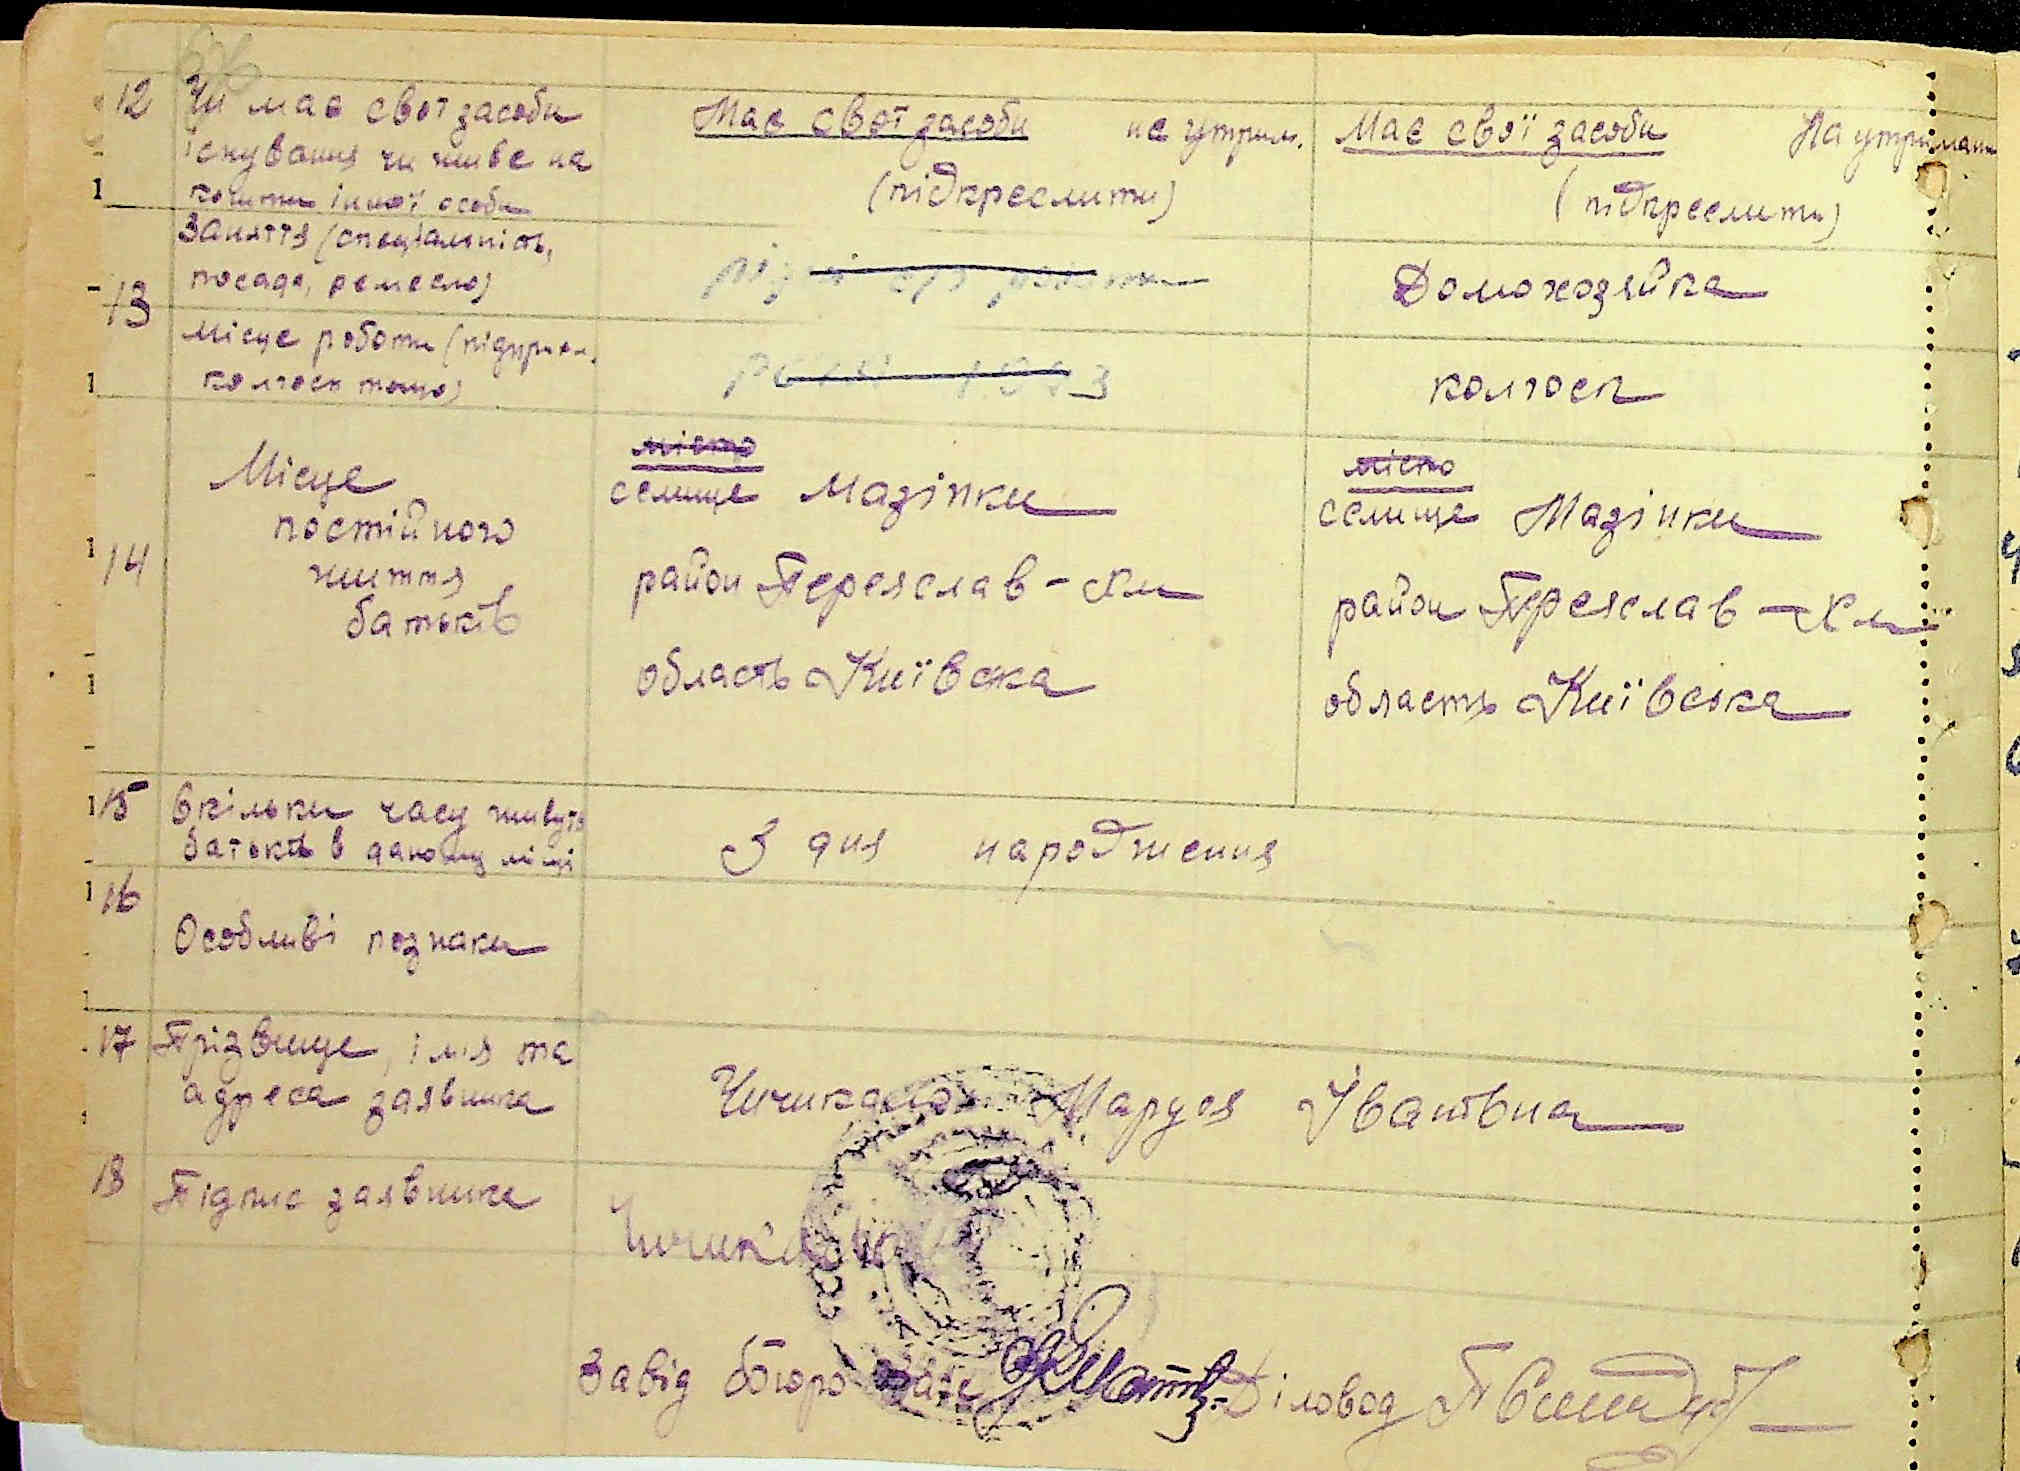 12 Чи має свої засоби
існування чи живе на
кошти іншої особи
Має свої засоби на утрим.
(підкреслити)
Має свої засоби На утриман
(підкреслити)
13 Заняття (спеціальність,
посада, ремесло)
Домохозяйка
Місце роботи (підприєм.
колгосп тощо)
1943
колгосп
14 Місце
постійного
життя
батьків
місто
селище Мазінки
район Переяслав-Хм
область Київска
місто
селище Мазінки
район Переяслав-Хм
область Київська
15 Скільки часу живуть
батьки в даному місці
З дня народження
16 Особливі познаки
17 Прізвище, імя та
адреса заявника
Чичикало Маруся Іванівна
18 Підпис заявника
Чичикало
Завід бюро Загс Діловод